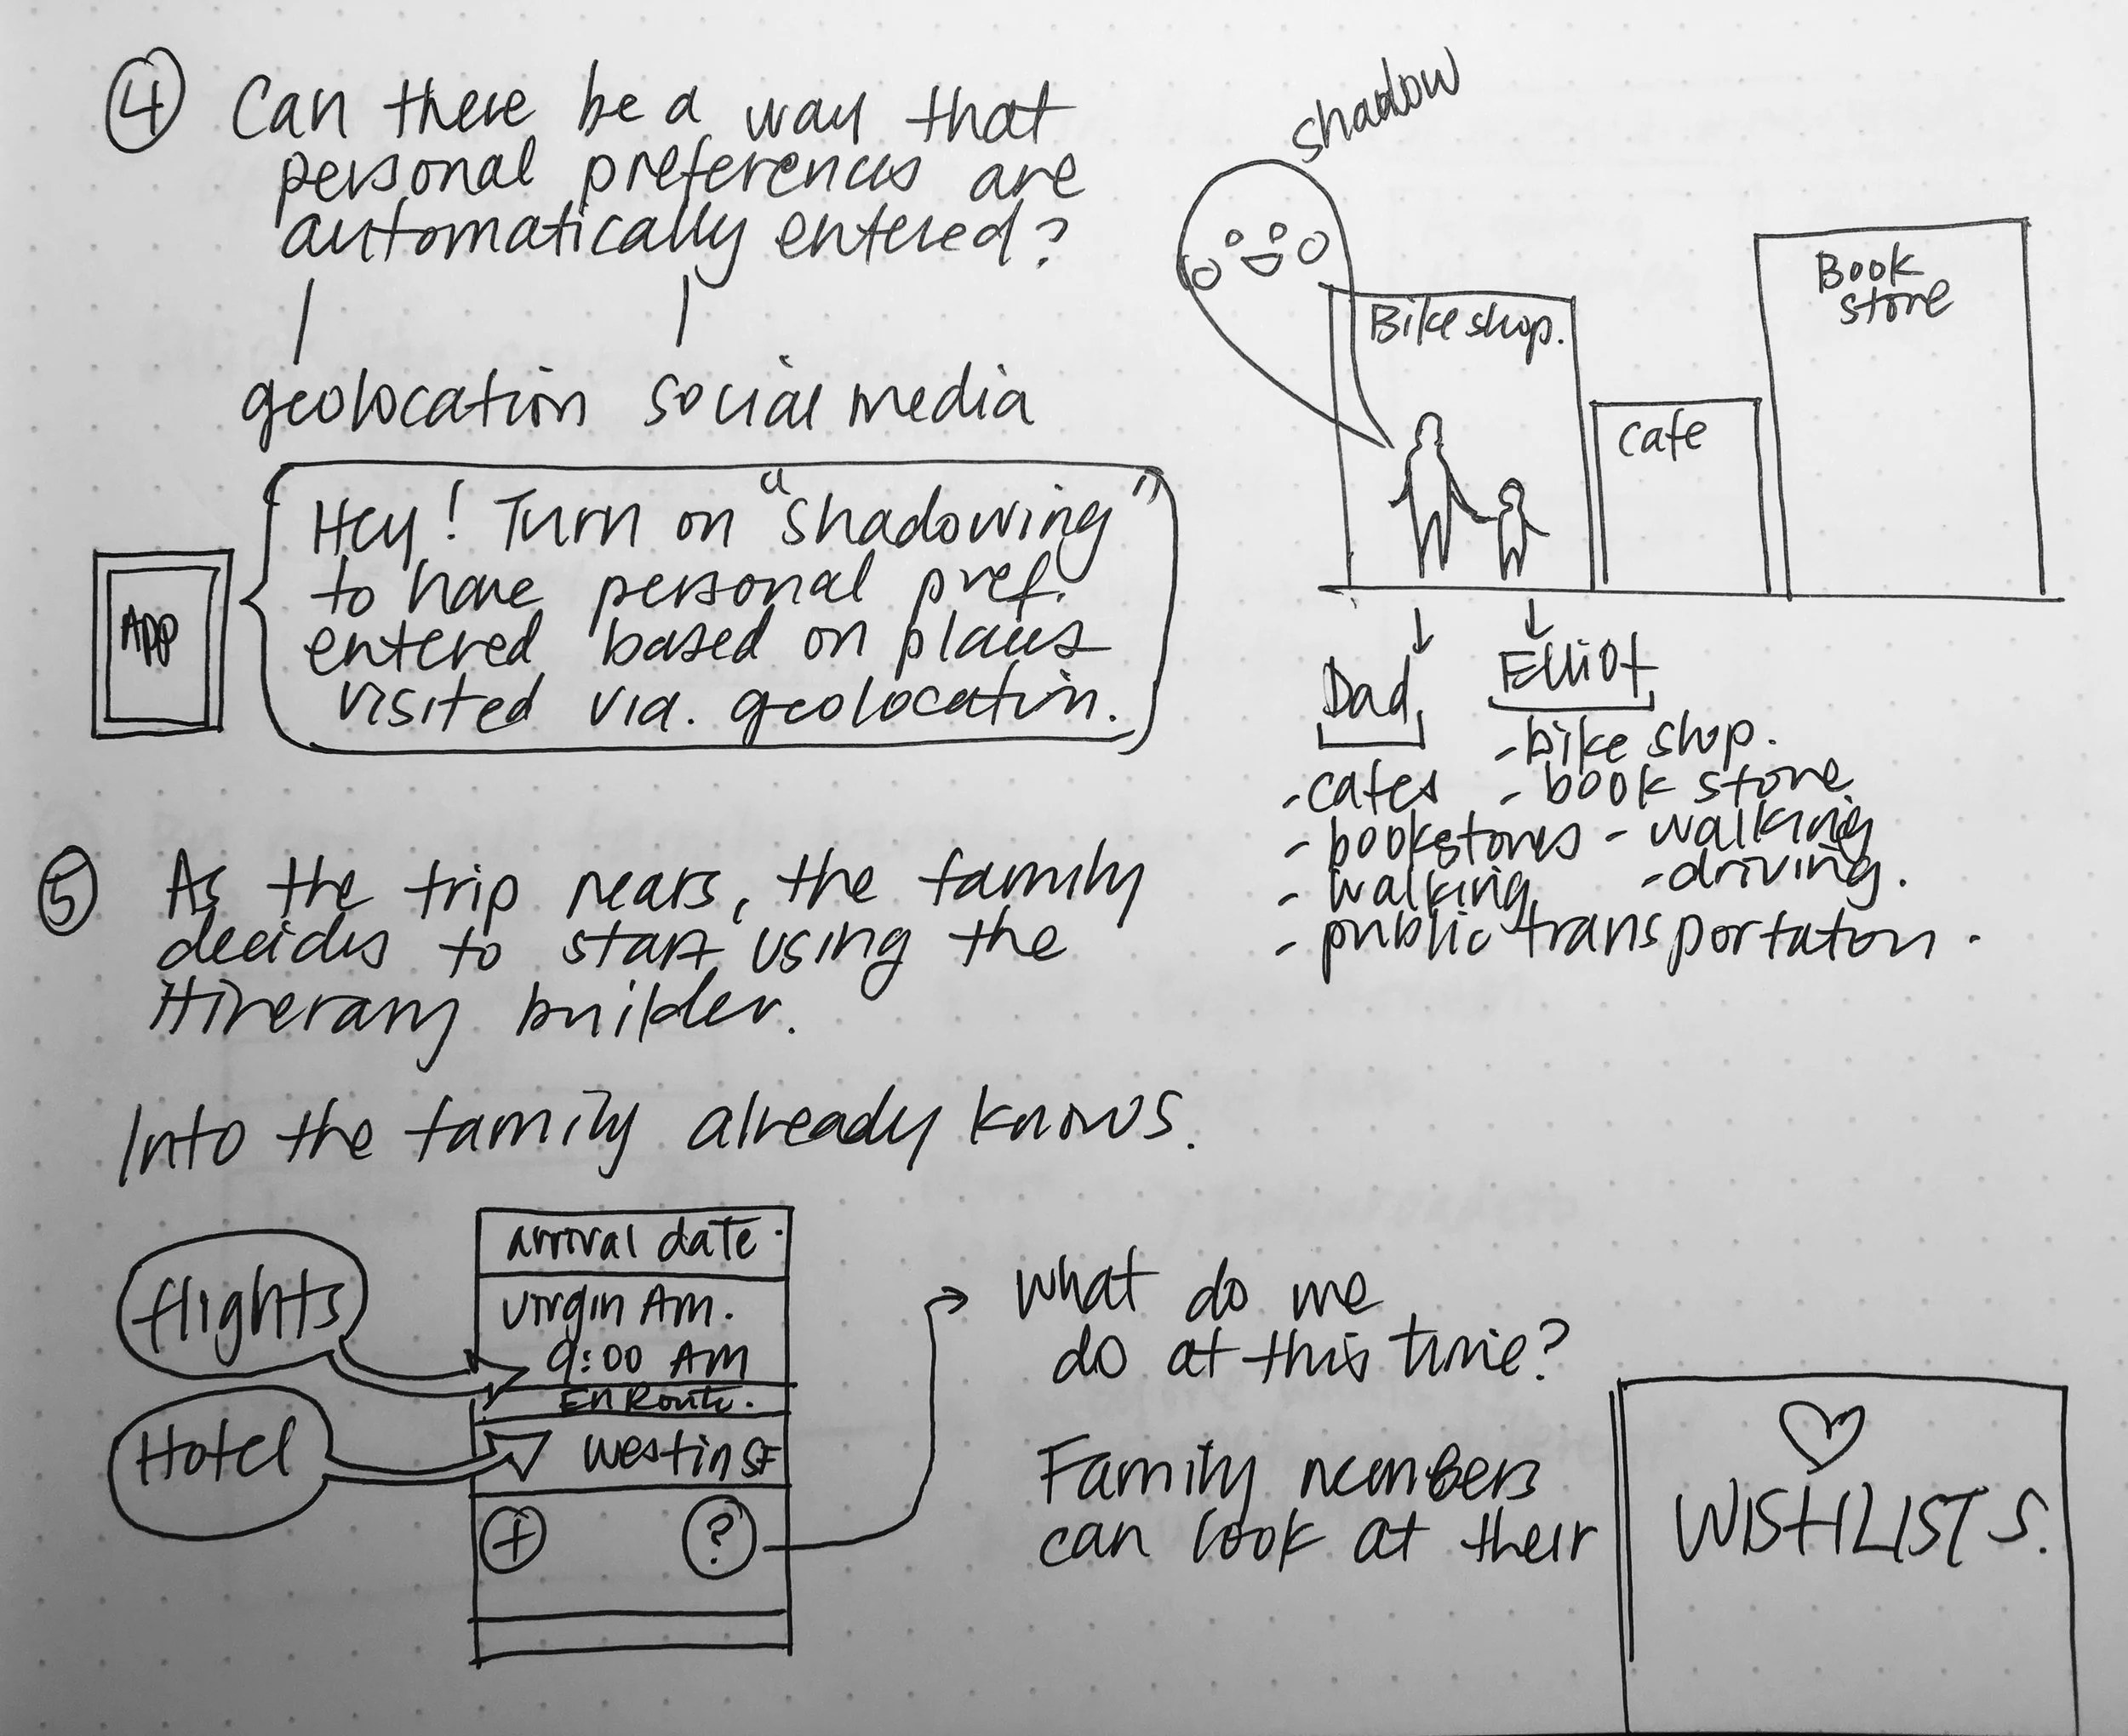 ④ Can there be a way that
personal preferences are
automatically entered?
geolocation social media
APP
Hey! Turn on "shadowing"
to have personal pref.
entered based on places
visited via. geolocation.
shadow
Bike shop.
cafe
Book
store
Dad
- cafes
- bookstores
- walking
- public transportaton.
Elliot
- bike shop.
- book store
- walking
- driving.
⑤ As the trip nears, the family
decides to start using the
itinerary builder.
Info the family already knows.
flights
Hotel
arrival date.
Virgin Am.
9:00 AM
En Route.
Westin SF
+ ?
What do we
do at this time?
Family members
can look at their
WISHLISTS.